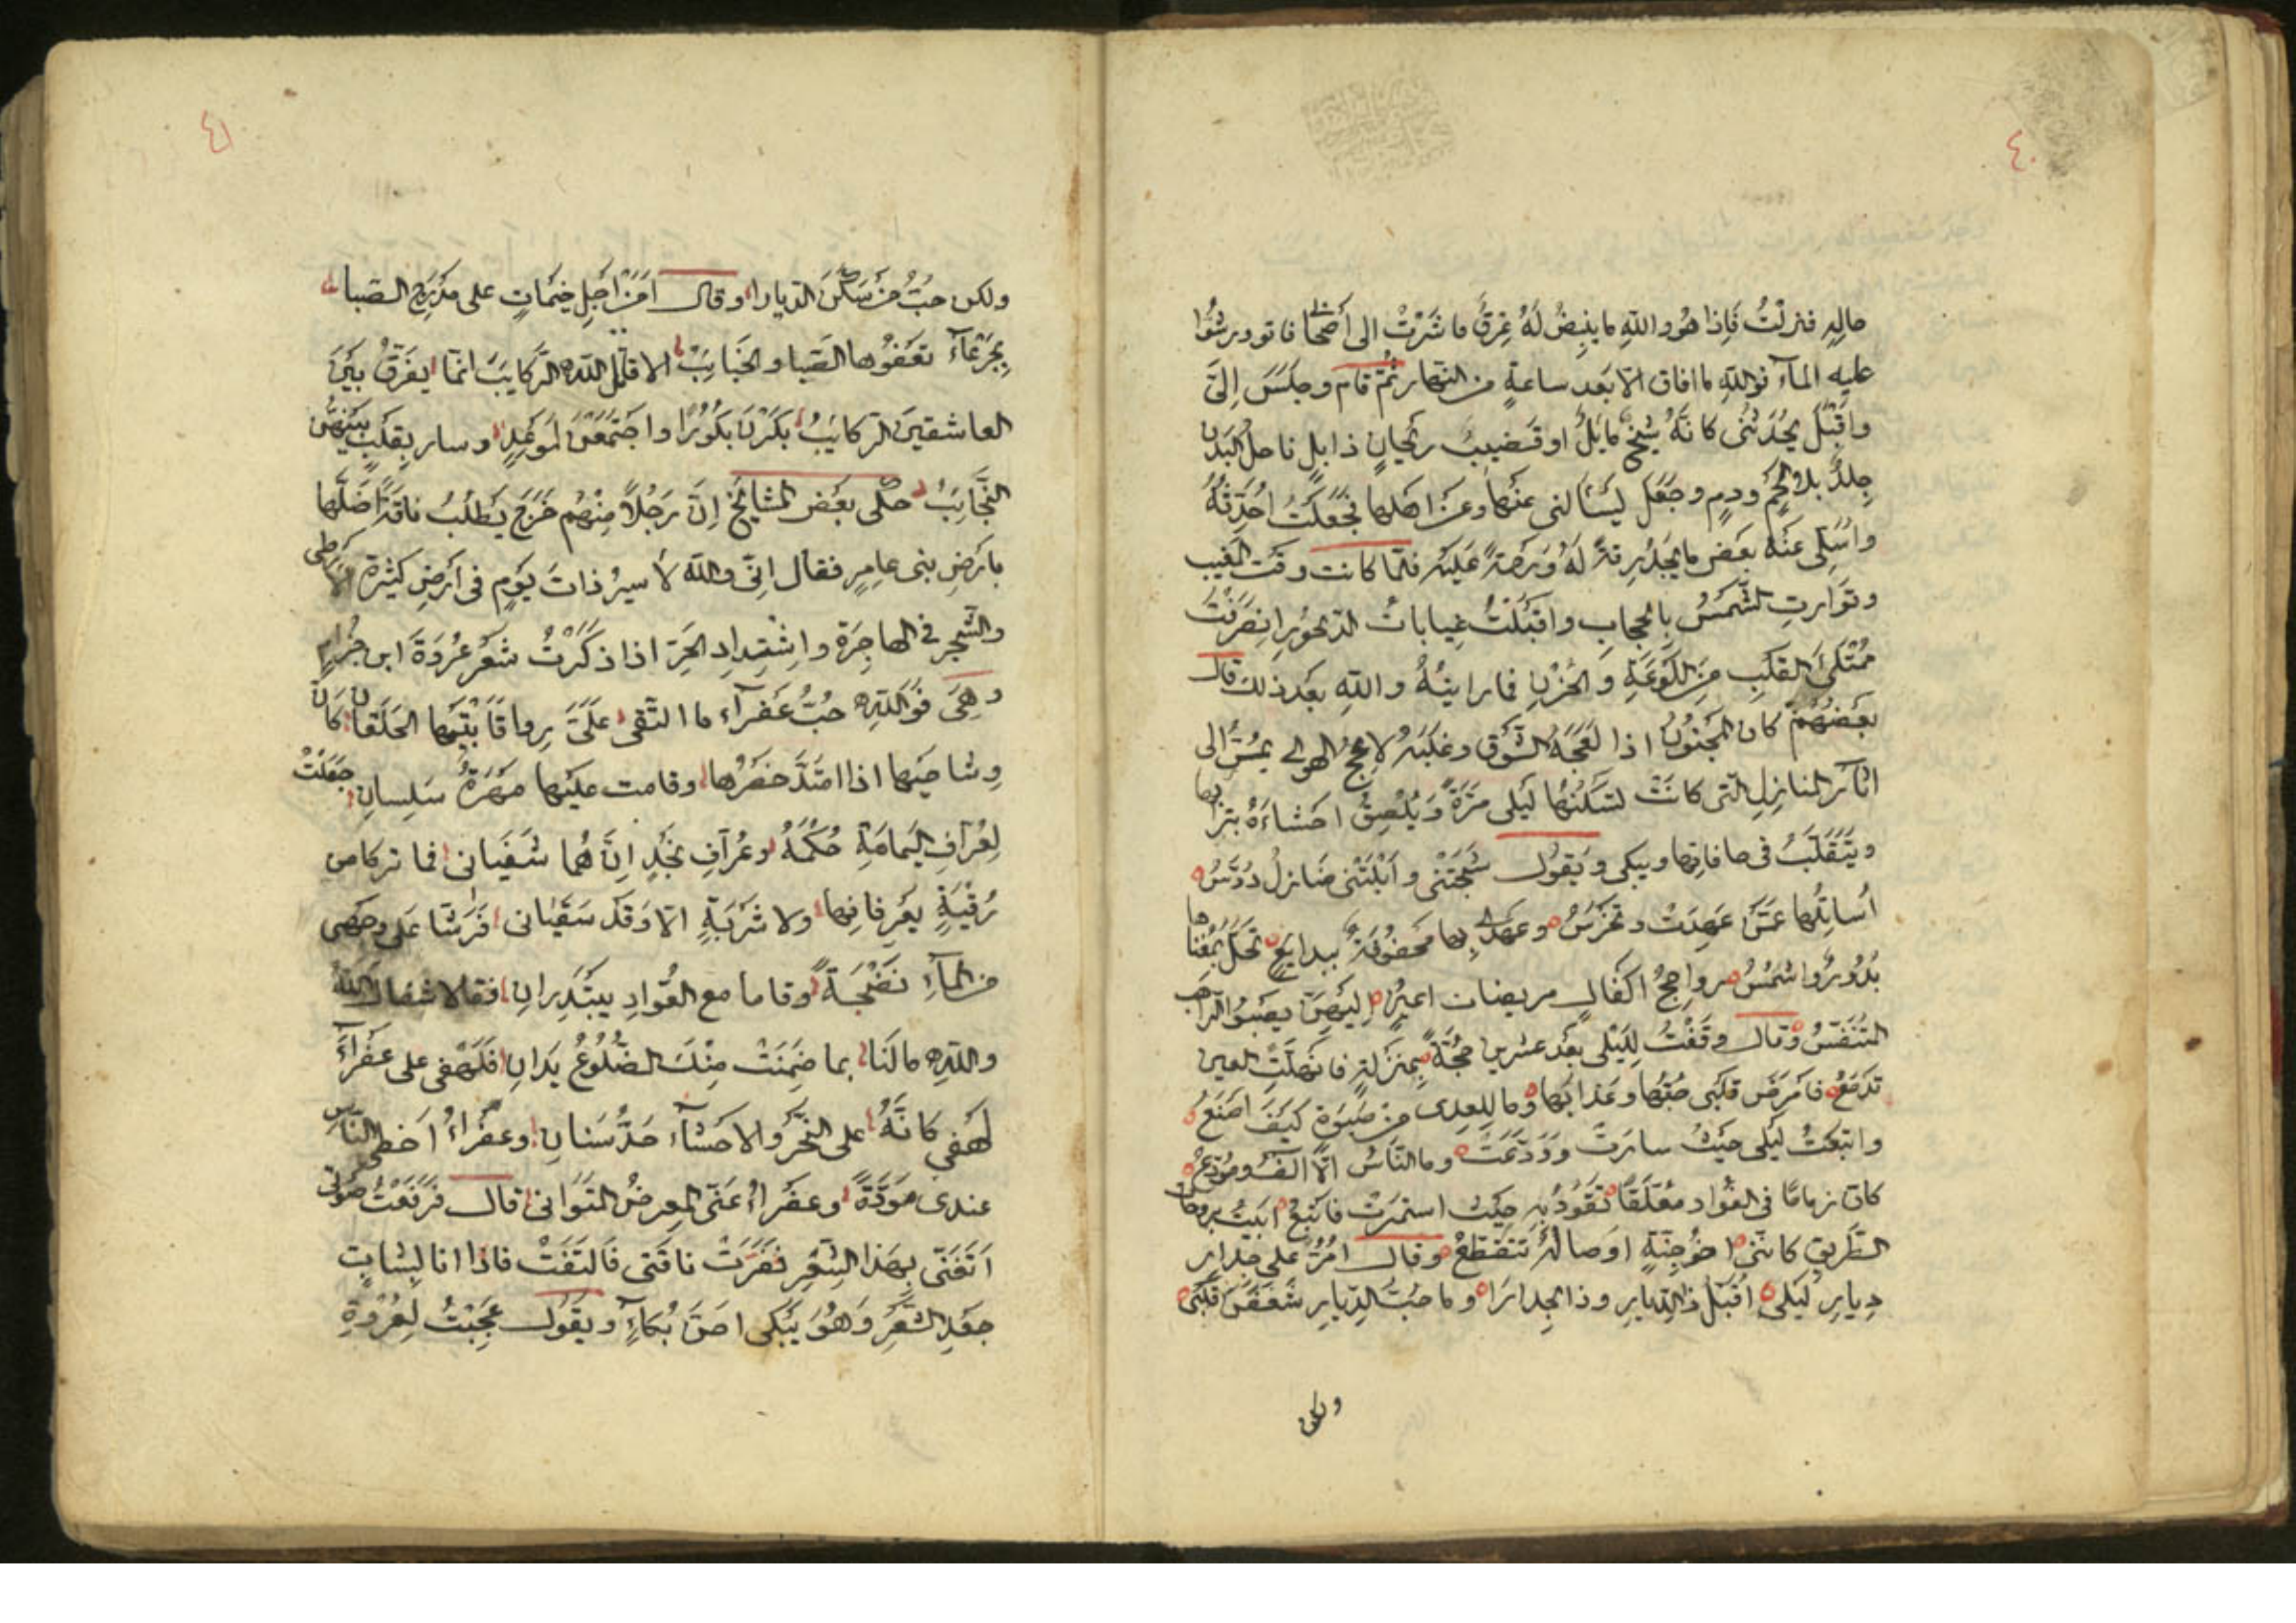 ٤٠
حاله فنزلتُ فَاِذا هُو والله ما ينبِضُ لَهُ عِرقٌ فاشَرْتُ الى أصحابى فاتو ورشّوُا
عليه المآء فوالله ما افاق الاّ بَعد ساعةٍ من النهار ثُمّ قام وجلَسَ اِلىَّ
واَقْبَلَ يحُدّثنُى كانّهُ شيخٌ مايلٌ او قَضيبُ ريحانٍ ذابلٍ ناحلُ البَدن
جِلدٌ بلا لحمٍ ودمٍ وجَعَل يَسْألنى عنها وعن اهلها فجَعَلتُ احُدّثهُ
واسُلى عنهُ بعَض ما يجدُ رِقةً لَهُ وَرحمَةً عَليهْ فلمّا كانت وقت المغيب
وتَوارتِ الشّمَسُ بالحجابِ واقبَلتْ غيابات الدّيجُورِ انصَرفتُ
مُمتَلىَ القَلبِ مِنَ اللّوعَةِ وَالحُزنِ فما رايتُهُ والله بَعد ذلك قال
بعَضهُمْ كان المجَنوُن اذا لعَجَهُ الشّوق وغلبَهُ لاعِجُ الهوى يمُرّ الى
اثآر المنازِلِ التى كانَتْ تسَكنُها لَيلى مَرّةً وَيُلْصِقُ احَشاءَهُ بترابها
ويَتَقلّبُ فى حافاتِها ويبكى وَيَقوُل شَجَتْنى وأَبْلَتْنى مَنازلُ دُرّسُ
اُسايلُها عمّن عَهِدَتْ وتَخرسُ وعَهدى بِها محَفوُفَةً ببدايع تحَلّ بمُغناها
بدُوُرٌ واشَمُسُ رواجحُ اكفَالٍ مريضات اعينٍ اِليَهنّ يصَبوُ الرّاهب
المُتنفَسُّ وقال وقَفْتُ لِليَلى بعَد عشرين حجّةً بمنزلةٍ فانهلَّتِ العين
تَدمَعُ فامَرضَ قلَبى حبّها وعَذابَها وما للِعِدى من صَبوَةٍ كيَفَ اصَنعُ
واتبعَتُ لَيلى حَيثُ سارَتْ ووَدّعَتْ وما النّاسُ الاّ آلفٌ ومُودّعُ
كان زِمامًا فى الفؤاد معُلّقًا تَقوُدُ بهِ حيَثُ استمرّتْ فاتَبعُ ابيَتُ بروحات
الطّريقِ كانّنى اخوُ جِنّةٍ اوَصالُهُ تتقطّعُ وقال امُرّ على جِدارِ
دِيارِ لَيلى اُقبّل ذا الدّيارِ وذا الجِدارَا وما حبّ الدّيارِ شَغَفنَ قلَبى
ولكن
٤١
ولكن حبُّ مَن سَكَنَ الدّيارا وقال اَمِنْ اَجلِ خيَماتٍ على مَدرَج الصّبا
بجَرعآءَ تعَفوُها الصّبا والجَنائبُ الا قاتل الله الرّكايبَ انمّا يفَرّقُ بَينَ
العاشقينَ الركائبُ بكَرنَ بكُوُرًا واجتَمعَنَ لموَعدٍ وسار بقَلبٍ بيَنهنّ
النّجَائبُ حكى بعَض المشايخ اِنّ رَجُلاً مِنهُم خَرَجَ يَطلُبُ ناقةً اَضَلّها
بارَضِ بنى عامِرٍ فقال انِّى والله لأسيرُ ذاتَ يَومٍ فى ارَضٍ كثيرة الارطى
والشّجر فى الهاجرَة واشتِدادِ الحَرّ اذا ذكَرتُ شعَرُ عُروَةَ ابن حِزامٍ
وهِىَ فَواللهِ حبُّ عَفرآء ما التقى علَىَّ رِواقًا بيْتِها الخَلقانِ كانّ
وِشاحيَها اذا امتَدّ خَصَرُها وقامت عليَها مُهَرةٌ سَلِسانِ جَعَلتُ
لِعُرّافِ اليمَامَةِ حُكمَهُ وعُرّافِ نَجدٍ اِنَّ هُما شَفَيانى فما تركا من
رُقيَةٍ يعَرِفانِها ولا شَربَةٍ الاّ وَقَد سَقَيانى فَرَشّا عَلى وجهى
من المآءِ نَضْحَةً وقاما مع العُوّادِ يبتَدِرانِ فقالا شفاك اللهُ
واللهِ ما لَنا بما ضَمِنَتْ مِنكَ الضّلُوُعُ يَدانِ فلَهفى على عَفرآءَ
لَهفى كانّهُ على النّحرِ والاحَشآء حَدّ سَنانِ وعفَراءُ احَظى النّاس
عندى مَوَدّةً وعفَراءُ عَنّى المعِرضُ المتوَانى قال فرَفعَتُ صَوتى
اَتَغنّى بِهَذا الشّعِرِ فنَفَرتْ ناقَتى فَالتَفَتّ فاذا انا بِشابٍ
جعَدِ الشّعَرِ وَهُوَ يَبَكى احَرّ بُكاءٍ ويَقوُل عَجِبْتُ لِعُروَةِ